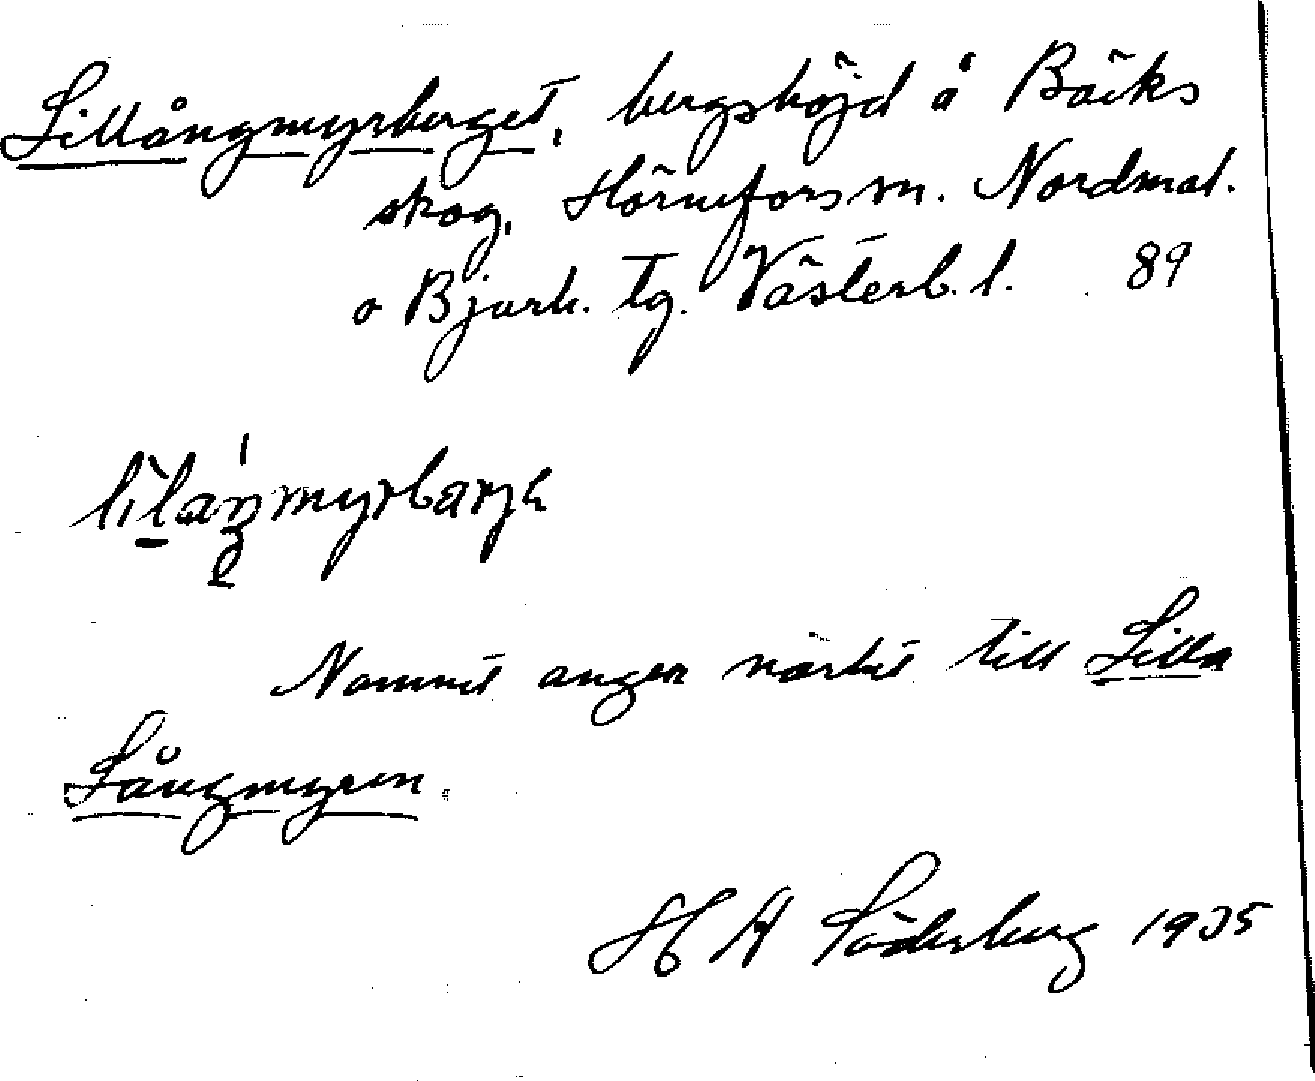 Lillångmyrberget, bergshöjd å Bäcks
skog, Hörnefors sn. Nordmal.
o Bjurh. tg. Västerb. l. 89
Namnet anger närhet till Lilla
Långmyren.
H A Söderberg 1935